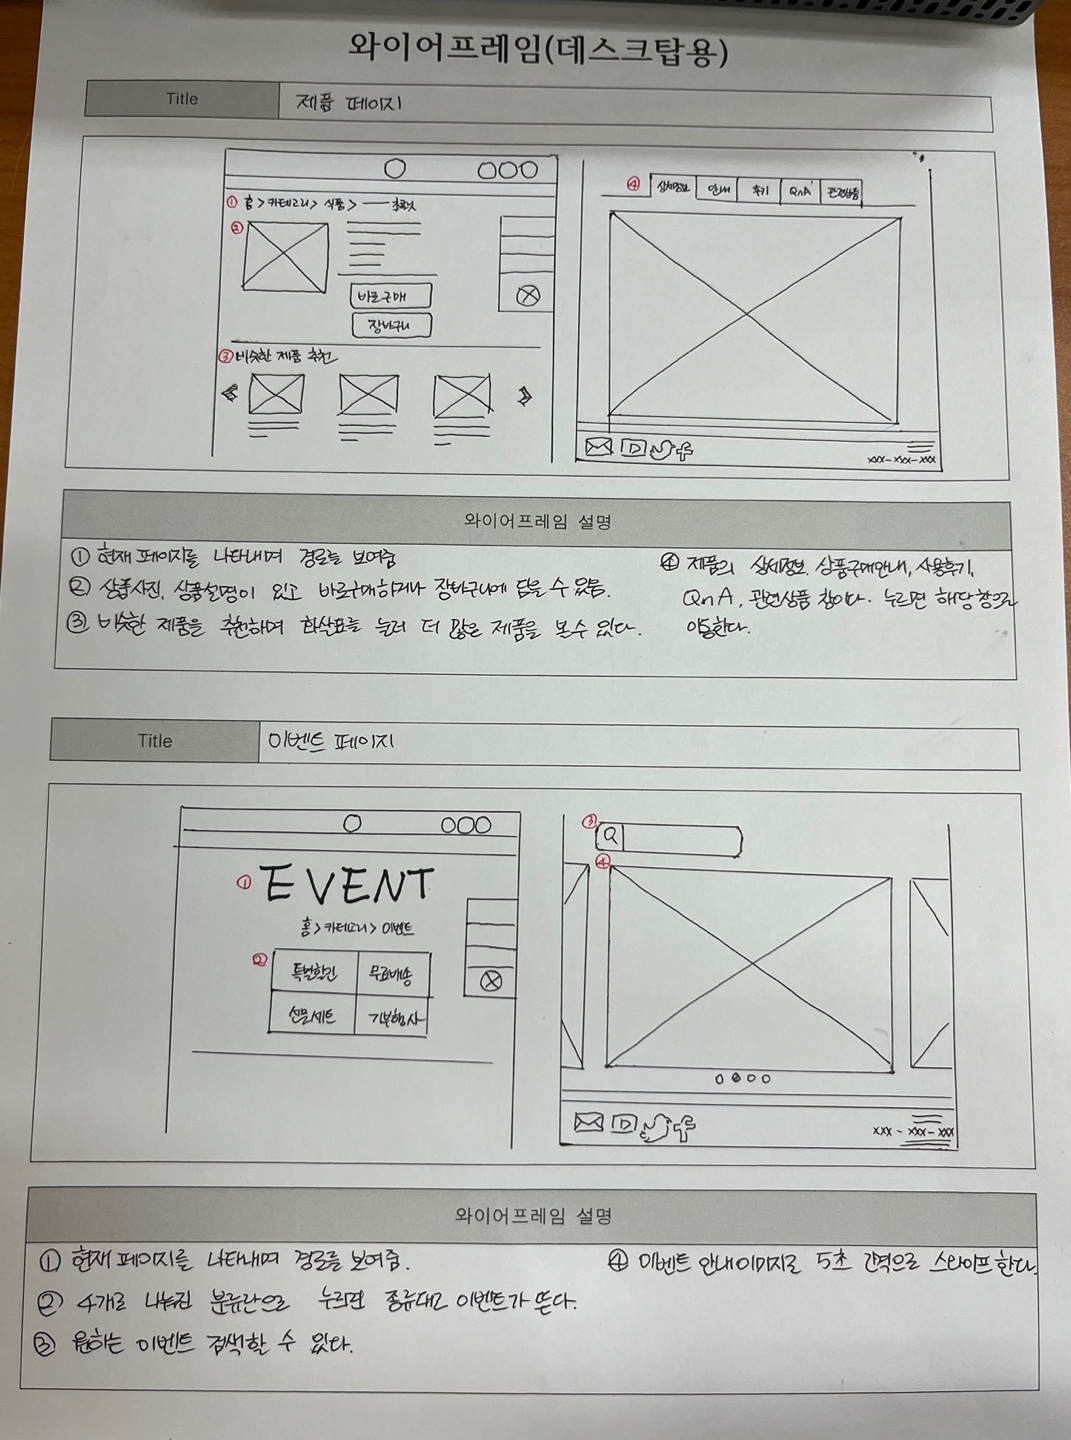 와이어프레임(데스크탑용)
Title 제품 페이지
① 홈 > 카테고리 > 식품 >
②
바로구매
장바구니
③ 비슷한 제품 추천
④ 상세정보 안내 후기 QnA 관련상품
xxx-xxx-xxx
와이어프레임 설명
① 현재 페이지를 나타내며 경로를 보여줌
② 상품사진, 상품설명이 있고 바로구매하거나 장바구니에 담을 수 있음.
③ 비슷한 제품을 추천하며 화살표를 눌러 더 많은 제품을 볼 수 있다.
④ 제품의 상세정보, 상품구매안내, 사용후기,
QnA, 관련상품 창이다. 누르면 해당 창으로
이동한다.
Title 이벤트 페이지
① EVENT
홈 > 카테고리 > 이벤트
② 특별할인 무료배송
선물세트 기부행사
③
④
xxx-xxx-xxx
와이어프레임 설명
① 현재 페이지를 나타내며 경로를 보여줌.
② 4개로 나눠진 분류란으로 누르면 종류대로 이벤트가 뜬다.
③ 원하는 이벤트 검색할 수 있다.
④ 이벤트 안내이미지로 5초 간격으로 스와이프한다.